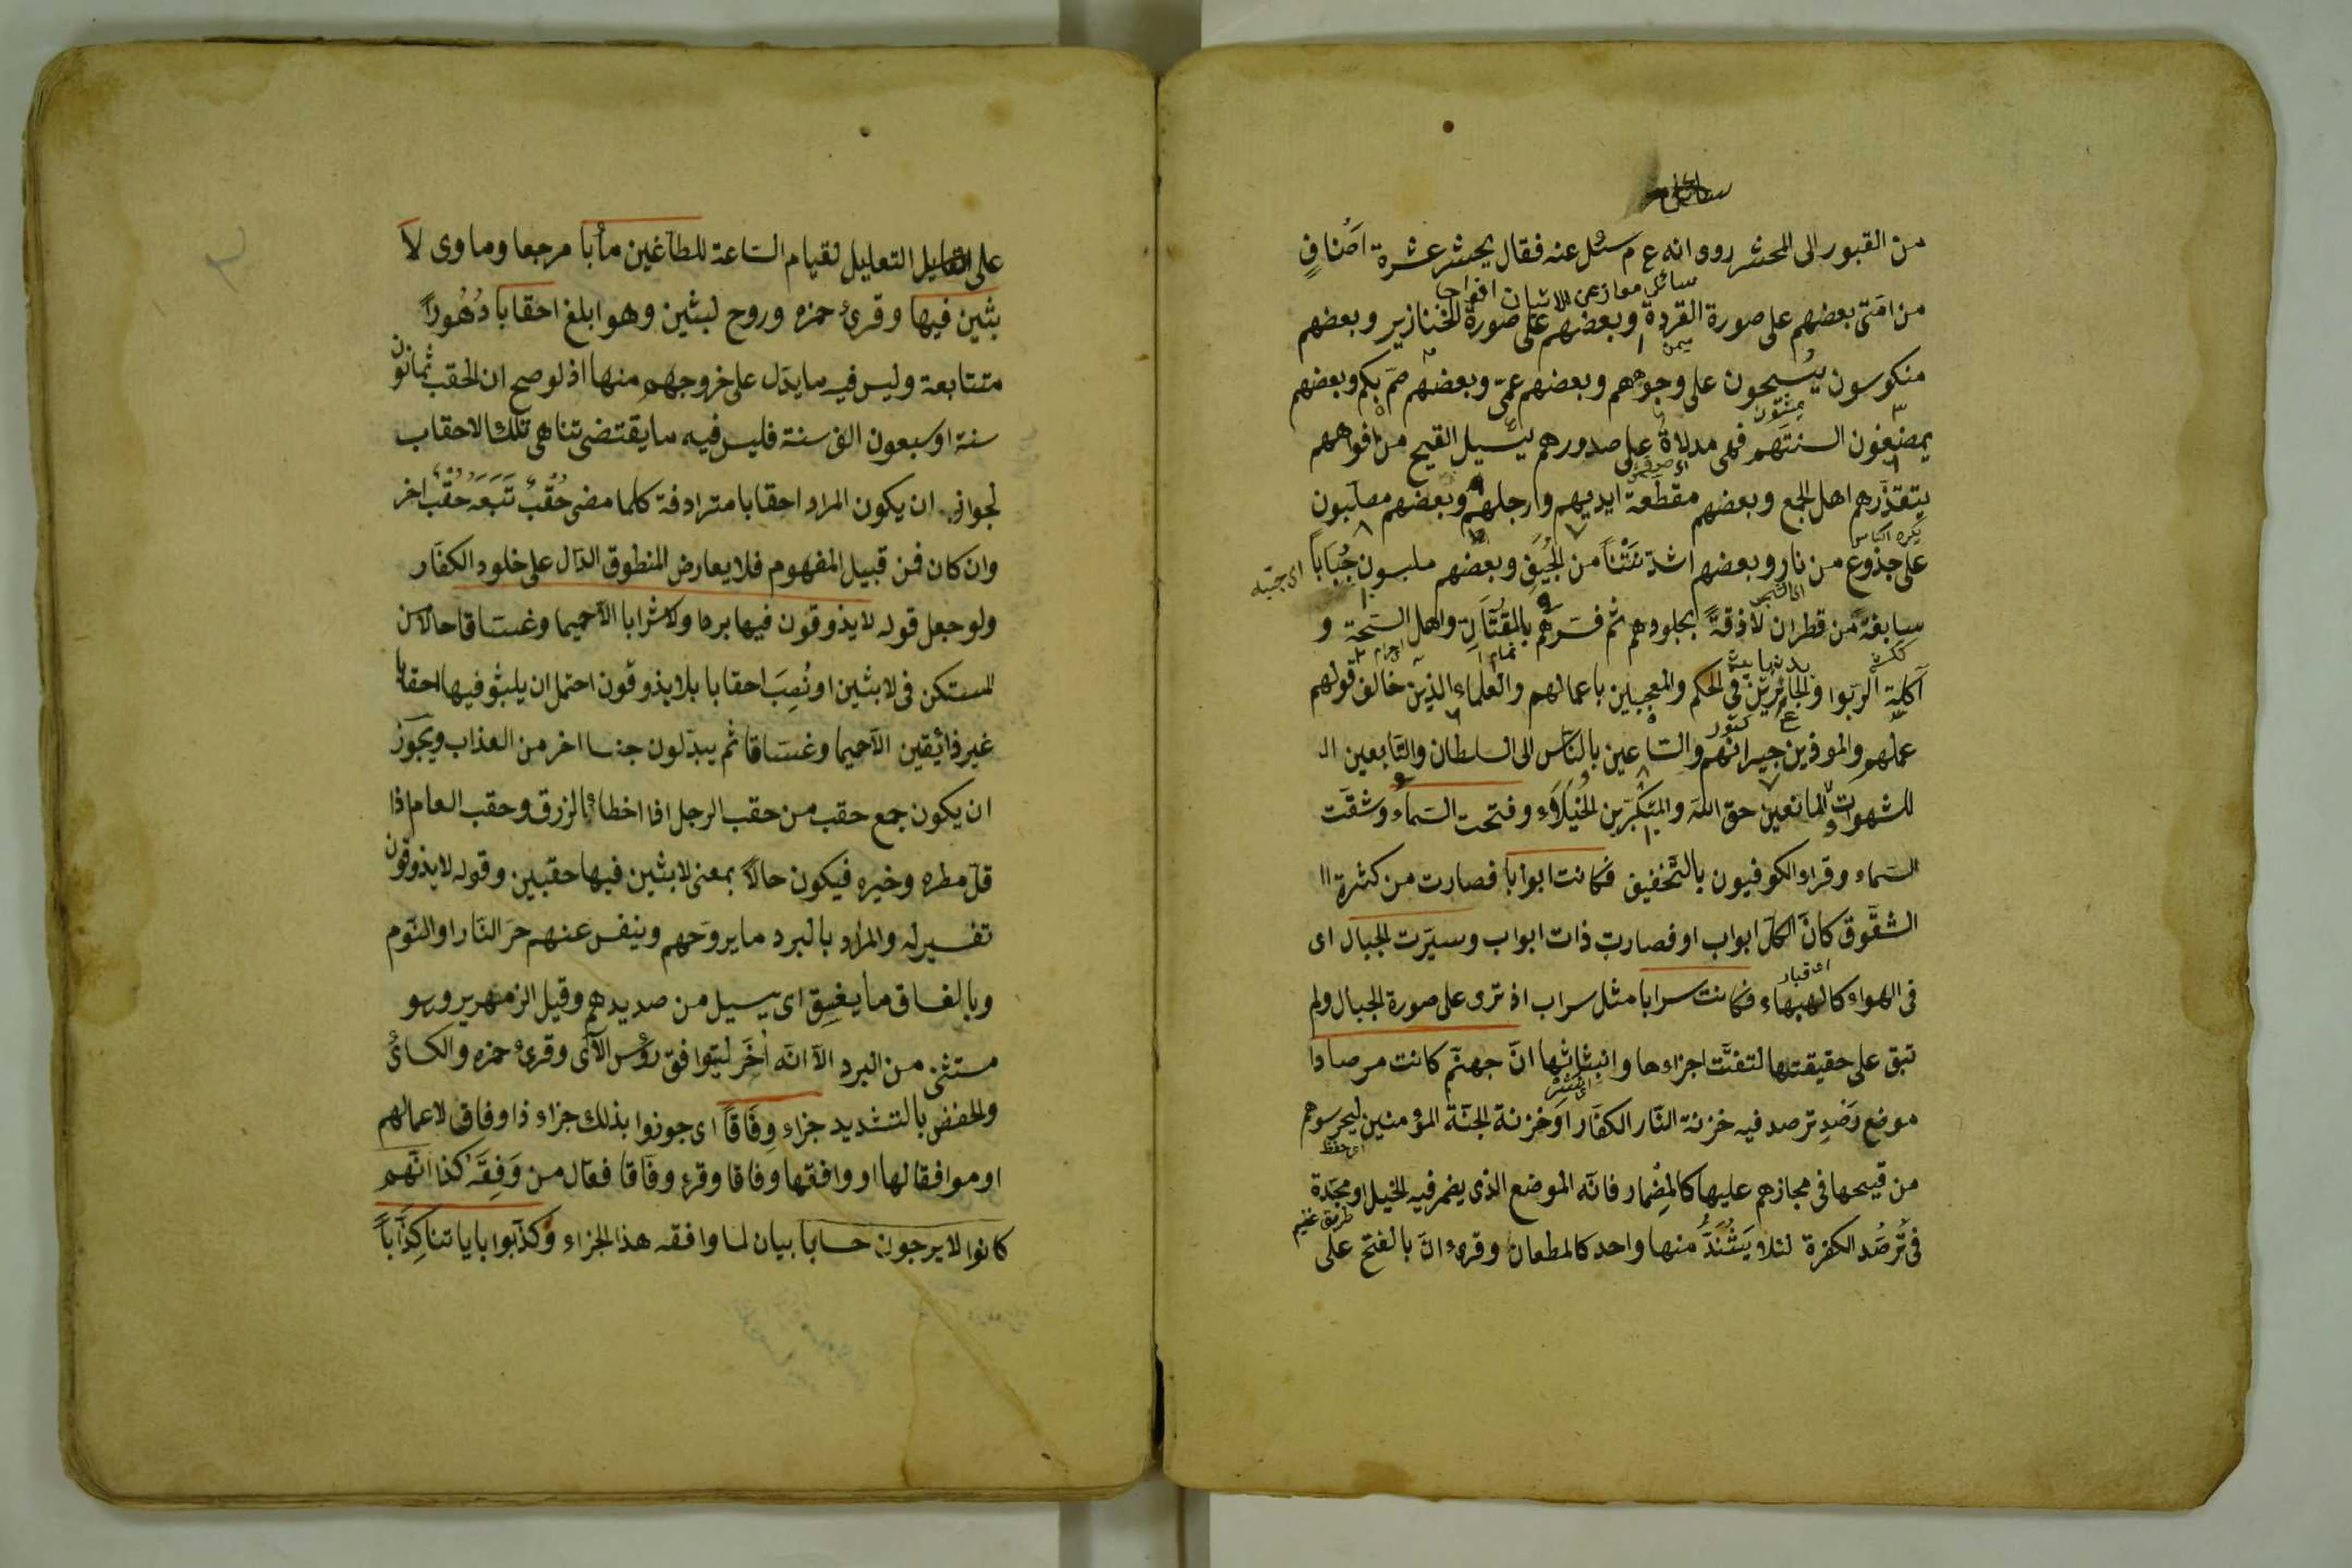 من القبور الى المحشر روى انه ع م سئل عنه فقال يحشر عشرة اصْنافٍ
سائلى معاذ عن الاتيان افواجا
من امّتى بعضهم على صورة القردة وبعضهم على صورة الخنازير وبعضهم
منكوسون يُسبحون على وجوههم وبعضهم عمّى وبعضهم صمّ بكم وبعضهم
يمضغون السنتهم فهى مدلاةٌ على صدورهم يسيل القيح من افواههم
يتقذّرهم اهل الجمع وبعضهم مقطّعة ايديهم وارجلهم وبعضهم مصلّبون
يكره الناس
على جذوع من نار وبعضهم اشدّ نَتْناً من الجِيَفِ وبعضهم ملبسون جُبَاباً
اى جبّه
سابغةً من قطران لاذقةً بجلودهم ثم فسّرهم بالقتّاتِ واهل السحة و
آكلة الربوا والجائرين فى الحكم والمعجبين باعمالهم والعلماء الذين خالف قولهم
عملهم والموذين جيرانهم والساعين بالناس الى السلطان والتابعين الـ
للشهوات والمانعين حق اللّه والمتكبّرين الخُيَلَاءِ وفتحت السماء وشقّت
السماء وقراء الكوفيون بالتخفيف فكانت ابوابا فصارت من كثرة ١١
الشقوق كانّ الكل ابواب او فصارت ذات ابواب وسيّرت الجبال اى
فى الهواء كالهباء فكانت سرابا مثل سراب اذ ترى على صورة الجبال ولم
تبق على حقيقتها لتفتّت اجزاءها وانبثاثها انّ جهنّم كانت مرصادا
موضع رَصَدٍ ترصد فيه خزنة النّار الكفّار او خزنة الجنّة المؤمنين ليحرسوهم
اى حفظ
من قيحها فى مجازهم عليها كالمِضْمار فانّه الموضع الذى يضمر فيه الخيل او مجدّة
فى ترَصُّد الكفرة لئلا يَشُذَّ منها واحد كالمطعان وقرئ انّ بالفتح على
على التعليل لقيام الساعة للطاغين مأبا مرجعا وماوى لا
بثين فيها وقرئ حمزه وروح لبثين وهو ابلغ احقابا دُهُوراً
متتابعة وليس فيه ما يدّل على خروجهم منها اذ لو صح ان الحقب ثمانون
سنة او سبعون الف سنة فليس فيه ما يقتضى تناهى تلك الاحقاب
لجواز ان يكون المراد احقابا مترادفة كلما مضى حُقْبٌ تَبَعَهُ حُقْبٌ اخر
وان كان فمن قبيل المفهوم فلا يعارض المنطوق الدّال على خلود الكفّار
ولو جعل قوله لا يذوقون فيها بردا ولا شرابا الّا حميما وغسّاقا حالا من
المستكن فى لابثين او نُصِبَ احقابا بلا يذوقون احتمل ان يلبثو فيها احقابا
غير ذائقين الّا حميما وغسّاقا ثم يبدّلون جنسا اخر من العذاب ويجوز
ان يكون جمع حقب من حقب الرجل اذا اخطاءه الرزق وحقب العام اذا
قلّ مطره وخيره فيكون حالاً بمعنى لابثين فيها حقبين وقوله لا يذوقون
تفسير له والمراد بالبرد ما يروّحهم وينفس عنهم حرّ النّار او النّوم
وبالغساق ما يغسِق اى يسيل من صديدهم وقيل الزمهرير وهو
مستثنى من البرد الّا انّه اُخّر ليتوافق رؤس الآى وقرئ حمزه والكسائى
والحفص بالتشديد جزاء وِفَاقاً اى جوزوا بذلك جزاء ذا وفاق لاعمالهم
او موافقا لها او وافقها وفاقا وقرئ وفّاقا فعّال من وَفِقَهُ كذا انّهم
كانوا لا يرجون حسابا بيان لما وافقه هذا الجزاء وَكذّبوا باياتنا كِذَّاباً